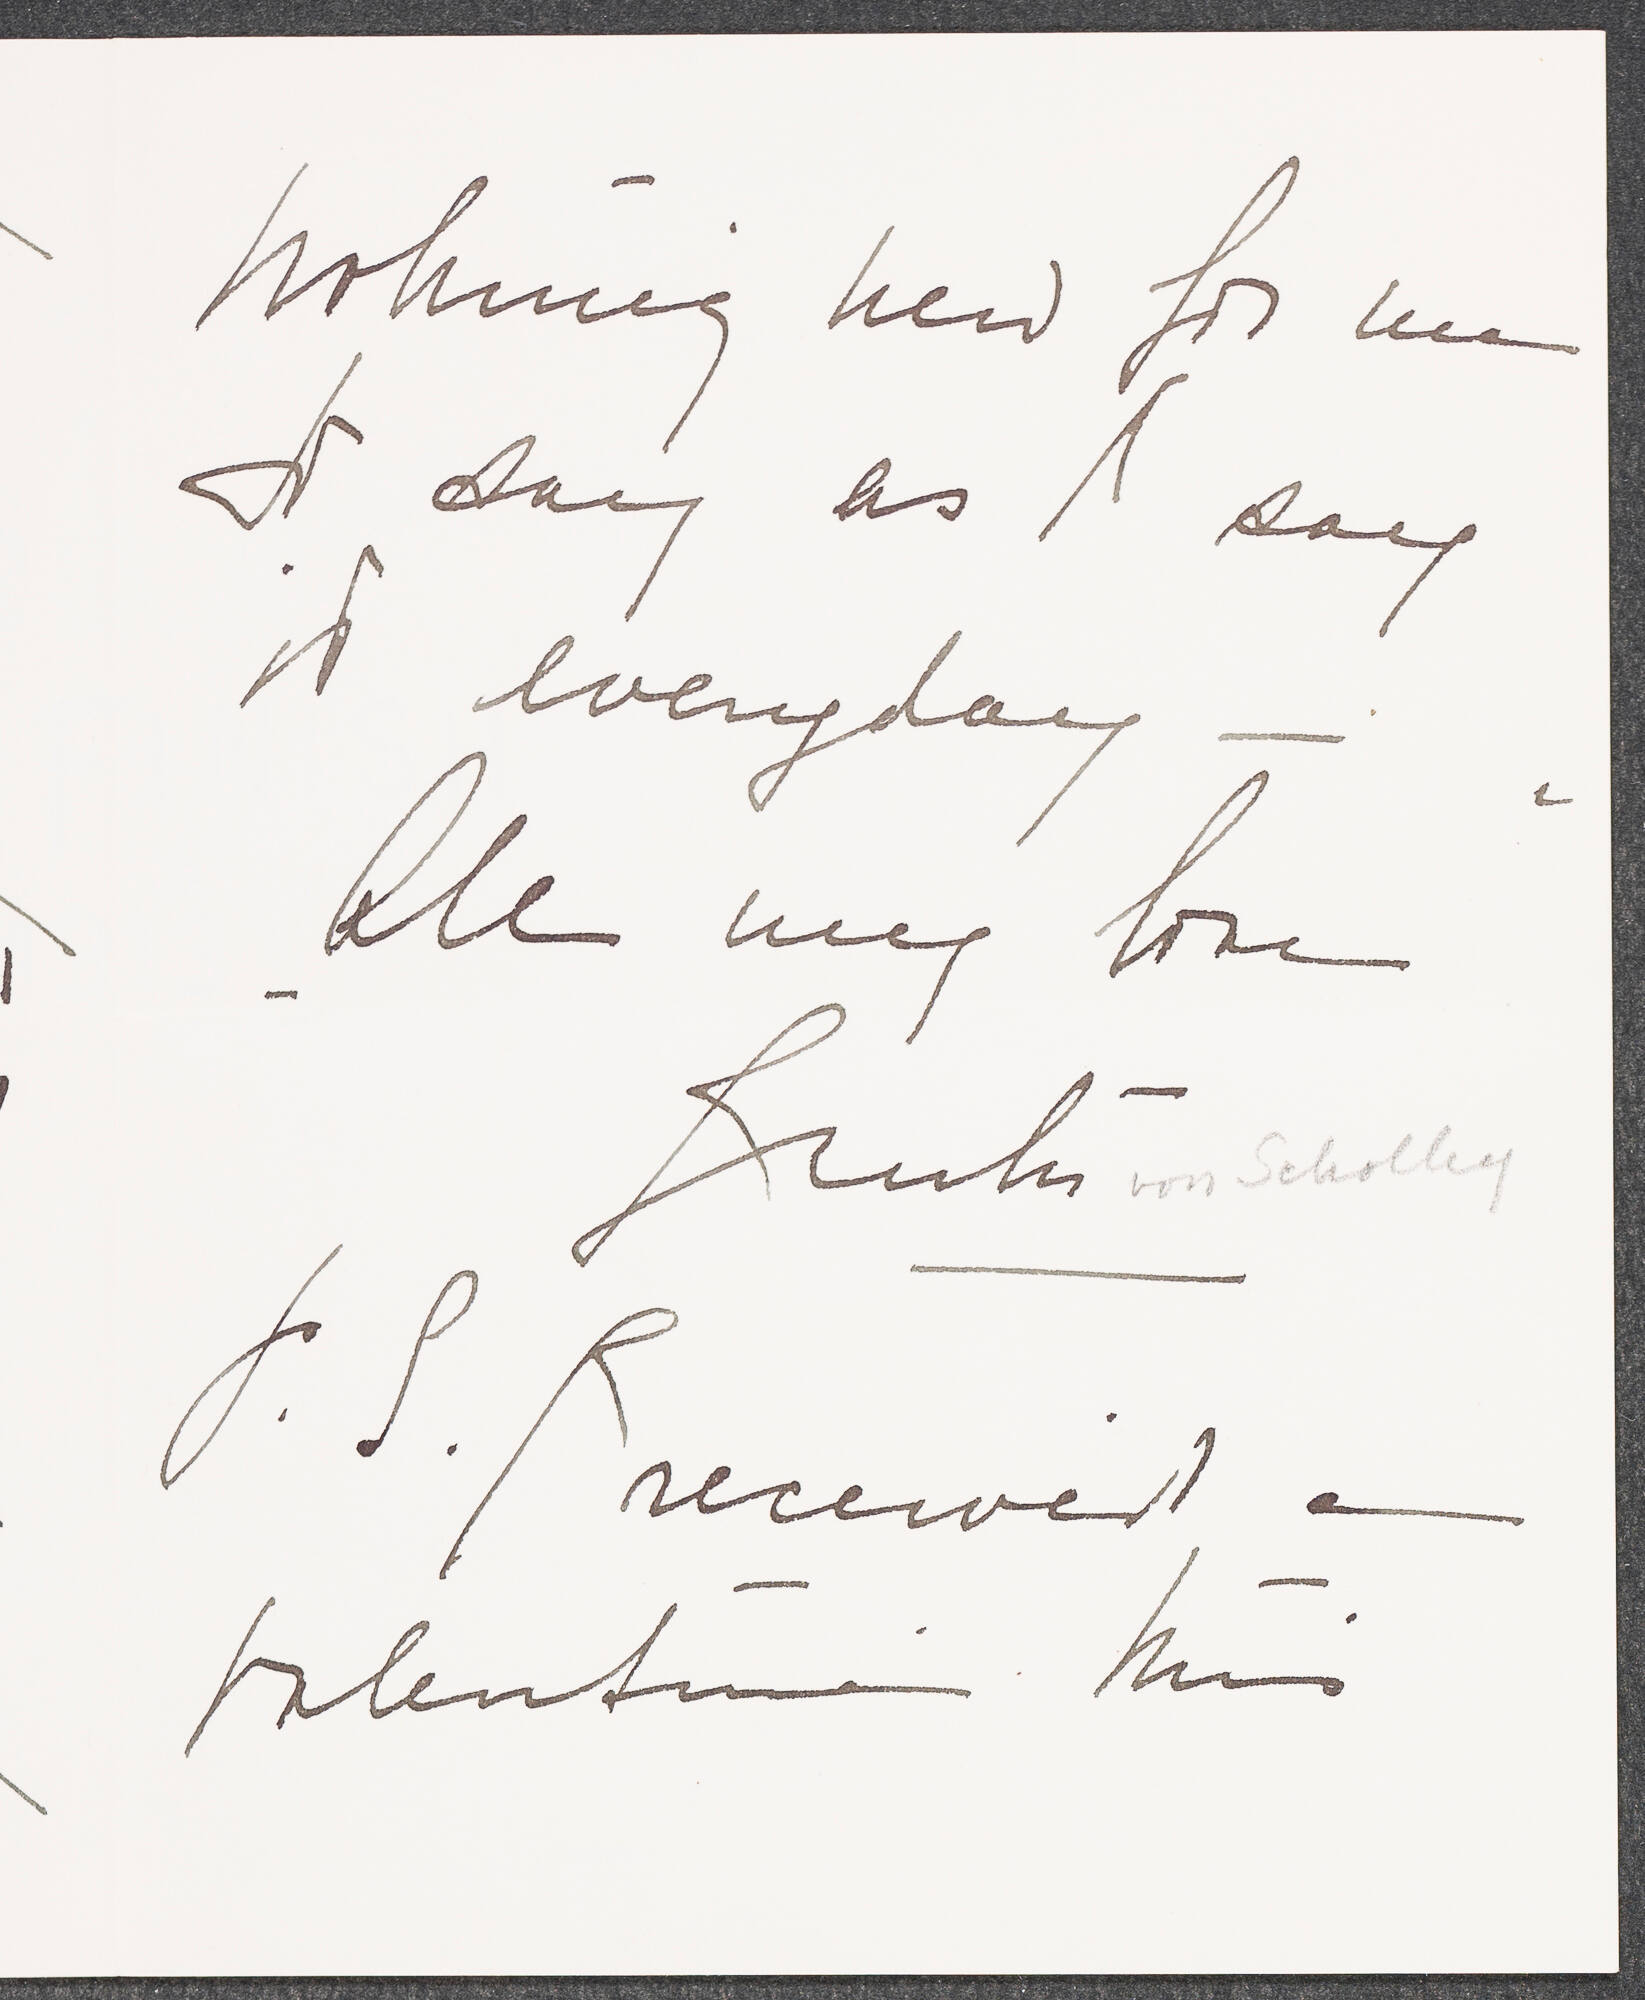 nothing new for me
to say as I say
it everyday —
All my love
Ruth von Scholley
P.S. I received a
valentine this